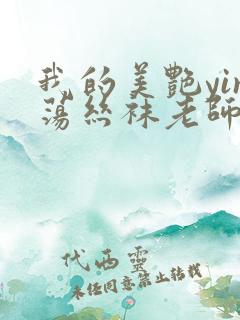 我的美艷yin
蕩絲袜老師
代西靈
未经同意禁止转载